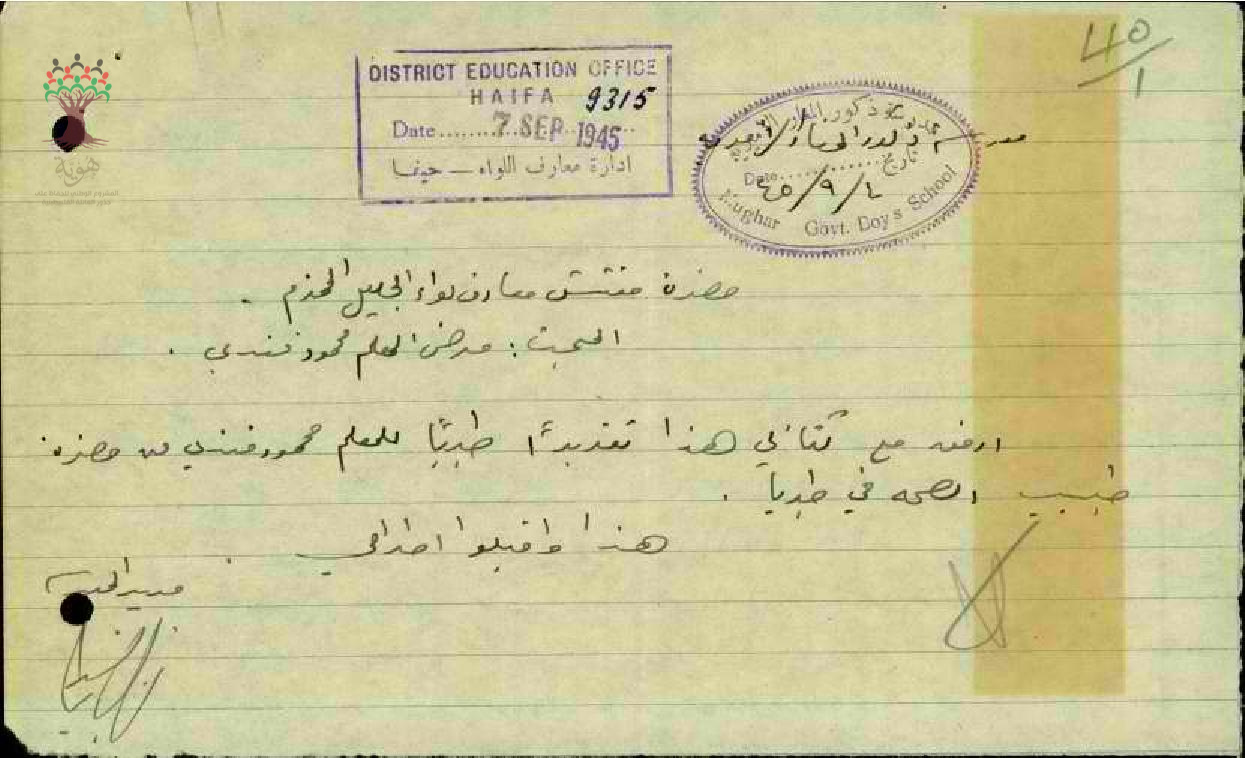 40/1
DISTRICT EDUCATION OFFICE
HAIFA 9315
Date 7 SEP 1945
ادارة معارف اللواء – حيفا
تاريخ
Date
٤٥/٩/٤
Mughar Govt. Boy's School
هوية
حضرة مفتش معارف لواء الجليل المحترم .
المبحث : مرض المعلم محمود فندي .
ارفق مع كتابي هذا تقريراً طبياً للمعلم محمود فندي من حضرة
طبيب الصحة في طبريا .
هذا واقبلوا احترامي .
مدير المدرسة